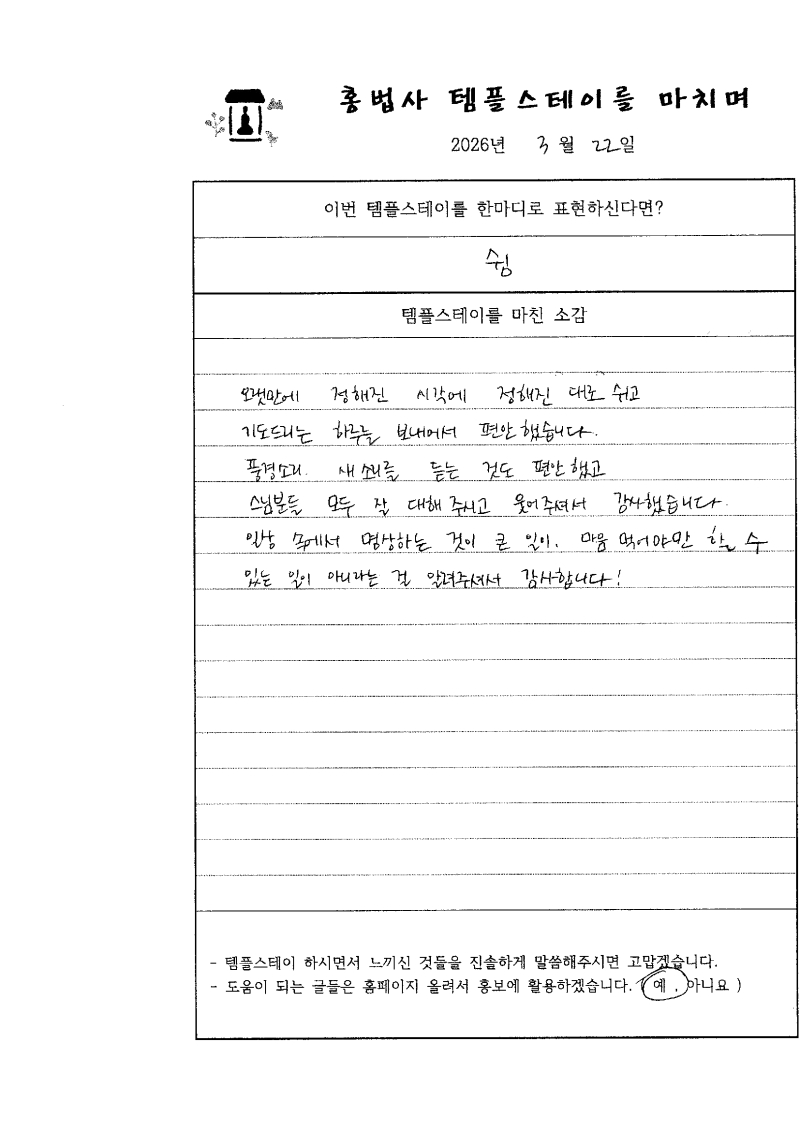 홍법사 템플스테이를 마치며
2026년 3월 22일
이번 템플스테이를 한마디로 표현하신다면?
쉼
템플스테이를 마친 소감
오랫만에 정해진 시각에 정해진 대로 쉬고
기도드리는 하루를 보내어서 편안했습니다.
풍경소리. 새소리를 듣는 것도 편안했고
스님분들 모두 잘 대해주시고 웃어주셔서 감사했습니다.
일상 속에서 명상하는 것이 큰 일이. 마음 먹어야만 할 수
있는 일이 아니라는 걸 알려주셔서 감사합니다!
- 템플스테이 하시면서 느끼신 것들을 진솔하게 말씀해주시면 고맙겠습니다.
- 도움이 되는 글들은 홈페이지 올려서 홍보에 활용하겠습니다. ( 예 , 아니요 )